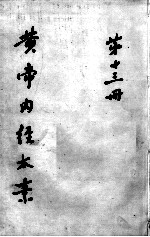 第十三册
黄帝内经太素